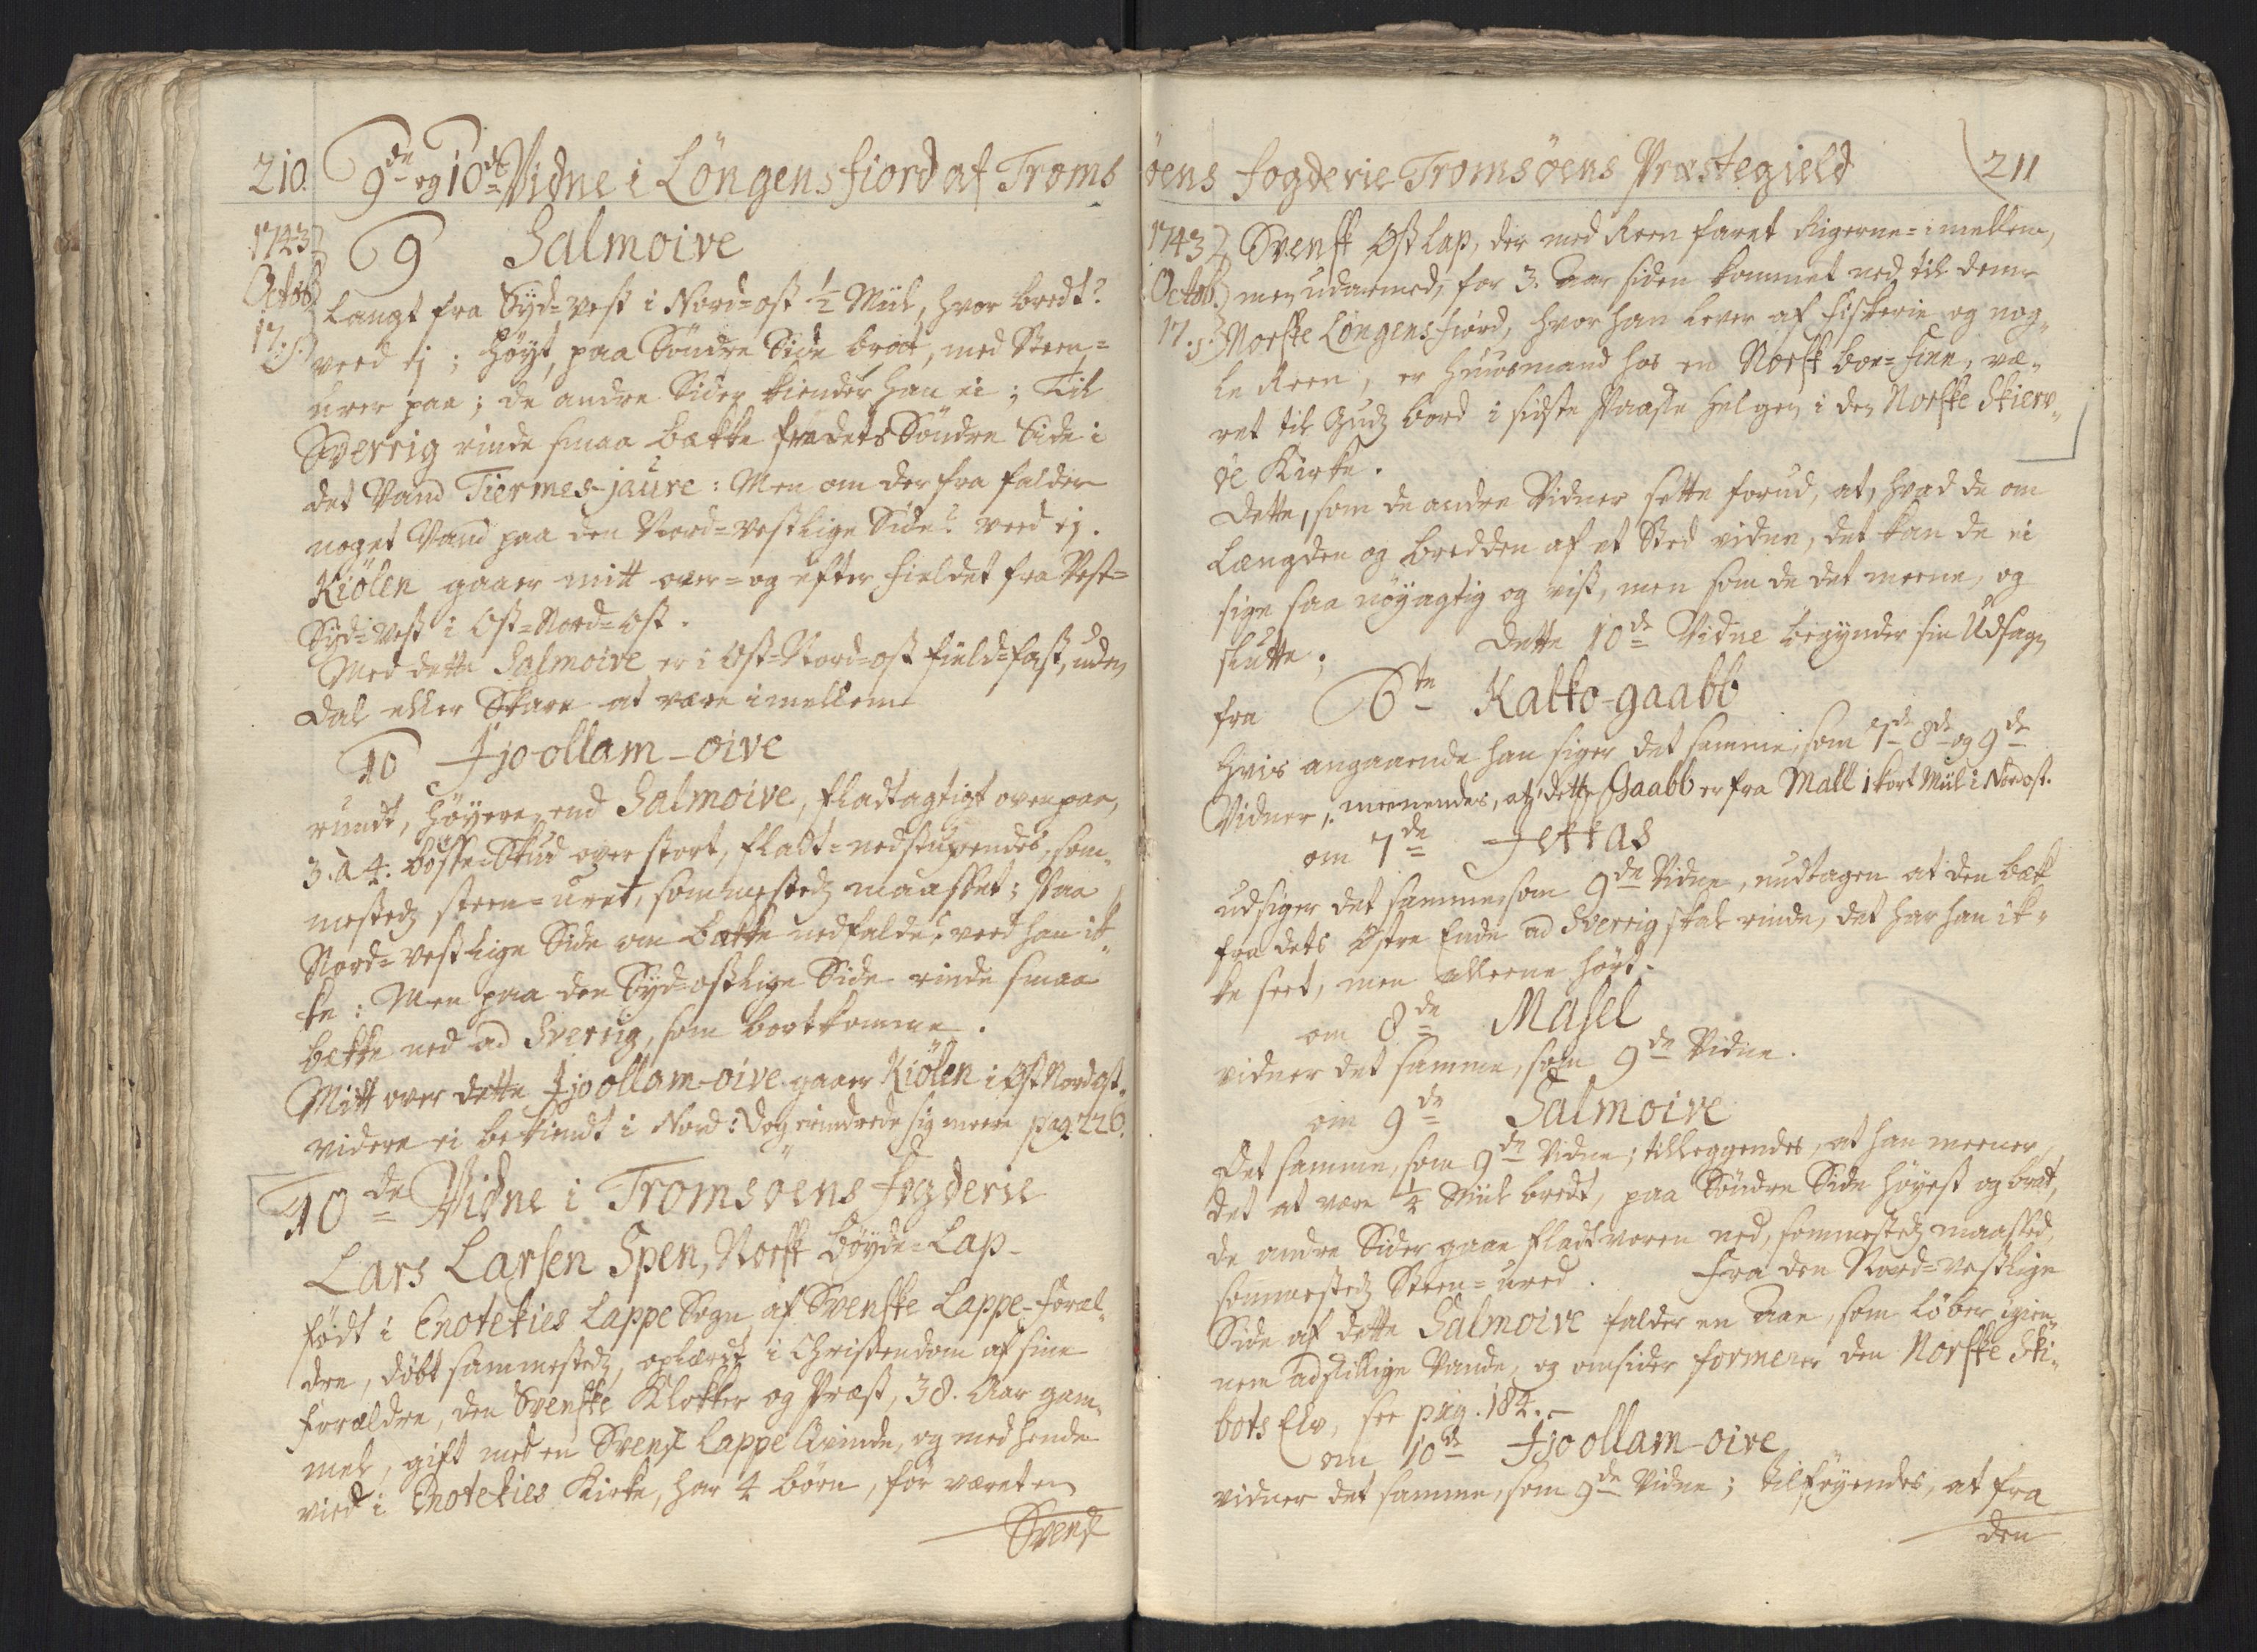 210. 9de og 10de Vidne i Löngens fiord af Troms
1743
Octob:
17.
9 Salmoive
langt fra Syd-vest i Nord-ost ½ Miil, hvor bredt?
veed ej; høyt, paa Søndre Side brat, med Steen-
urer paa; de andre Sider kiender han ei; Til
Sverrig rinde smaa bække fra dets Søndre Side i
det Vand Tiermes-jaure: Men om der fra falder
noget Vand paa den Nord-vestlige Side? veed ej.
Kiölen gaaer mitt over- og efter fieldet fra Vest-
Syd-Vest i Ost-Nord-Ost.
Med dette Salmoive er i Ost-Nord-ost field-fast, uden
dal eller Skare at være imellem
10 Jjo-ollam-oive
rundt, høyere end Salmoive, fladtagtigt oven paa,
3. à 4. bøsse-Skud over stort, fladt-nedstupendes, som-
mestedz steen-uret, sommestedz maasset; Paa
Nord-vestlige Side om bække nedfalde? veed han ik-
ke: Men paa den Syd-ostlige Side rinde smaa
bække ned ad Sverrig, som bortkomme.
Mitt over dette Jjo ollam-oive gaaer Kiölen i Ost Nord ost.
videre ei bekiendt i Nord: dog erindrede sig meere pag. 226.
10de Vidne i Tromsøens fogderie
Lars Larsen Spen, Norsk bøyde-Lap-
født i Enotekies Lappe Sogn af Svenske Lappe-foræl-
dre, døbt sammestedz, oplærdt i Christendom af sine
forældre, den Svenske Klokker og Præst, 38. Aar gam-
mel, gift med en Svensk Lappe Qvinde, og med hende
viet i Enotekies Kirke, har 4 børn, før været en
Svensk
öens fogderie Tromsöens Præstegield 211
1743
Octob.
17.
Svensk Ost Lap, der med Reen faret Rigerne-imellem,
men udarmed, for 3. Aar siden kommet ned til denne
Norske Löngens fiörd, hvor han lever af fiskerie og nog-
le Reen, er huusmand hos en Norsk boe-finn, væ-
ret til Gudz bord i sidste Paaske helgen i den Norske Skierv-
öe Kirke.
Dette, som de andre Vidner sette forud, at, hvad de om
Længden og bredden af et Sted vidne, det kan de ei
sige saa nøyagtig og vist, men som de det meene, og
slutte; Dette 10de Vidne begynder sin Udsagn
fra 6te Kalko-gaabb
hvis angaaende han siger det samme, som 7de 8de og 9de
Vidner, meenendes, at dette Gaabb er fra Mall 1 kort Miil i Nordost.
om 7de Jettas
udsiger det samme som 9de Vidne, undtagen at den bæk
fra dets Østre Ende ad Sverrig skal rinde, det har han ik-
ke seet, men alleene hørt.
om 8de Masel
vidner det samme, som 9de Vidne.
om 9de Salmoive
det samme, som 9de Vidne; tilleggendes, at han meener
det at være ¼ Miil bredt, paa Søndre Side høyest og brat,
de andre Sider gaae fladt voren ned, sommestedz maassed,
sommestedz Steen-ured. Fra den Nord-vestlige
Side af dette Salmoive falder en Aae, som løber igien-
nem adskillige Vande, og omsider formerer den Norske Ski-
bots Elv, see pag. 184.-
om 10de Jjo ollam-oive
vidner det samme, som 9de Vidne; tilføyendes, at fra
den